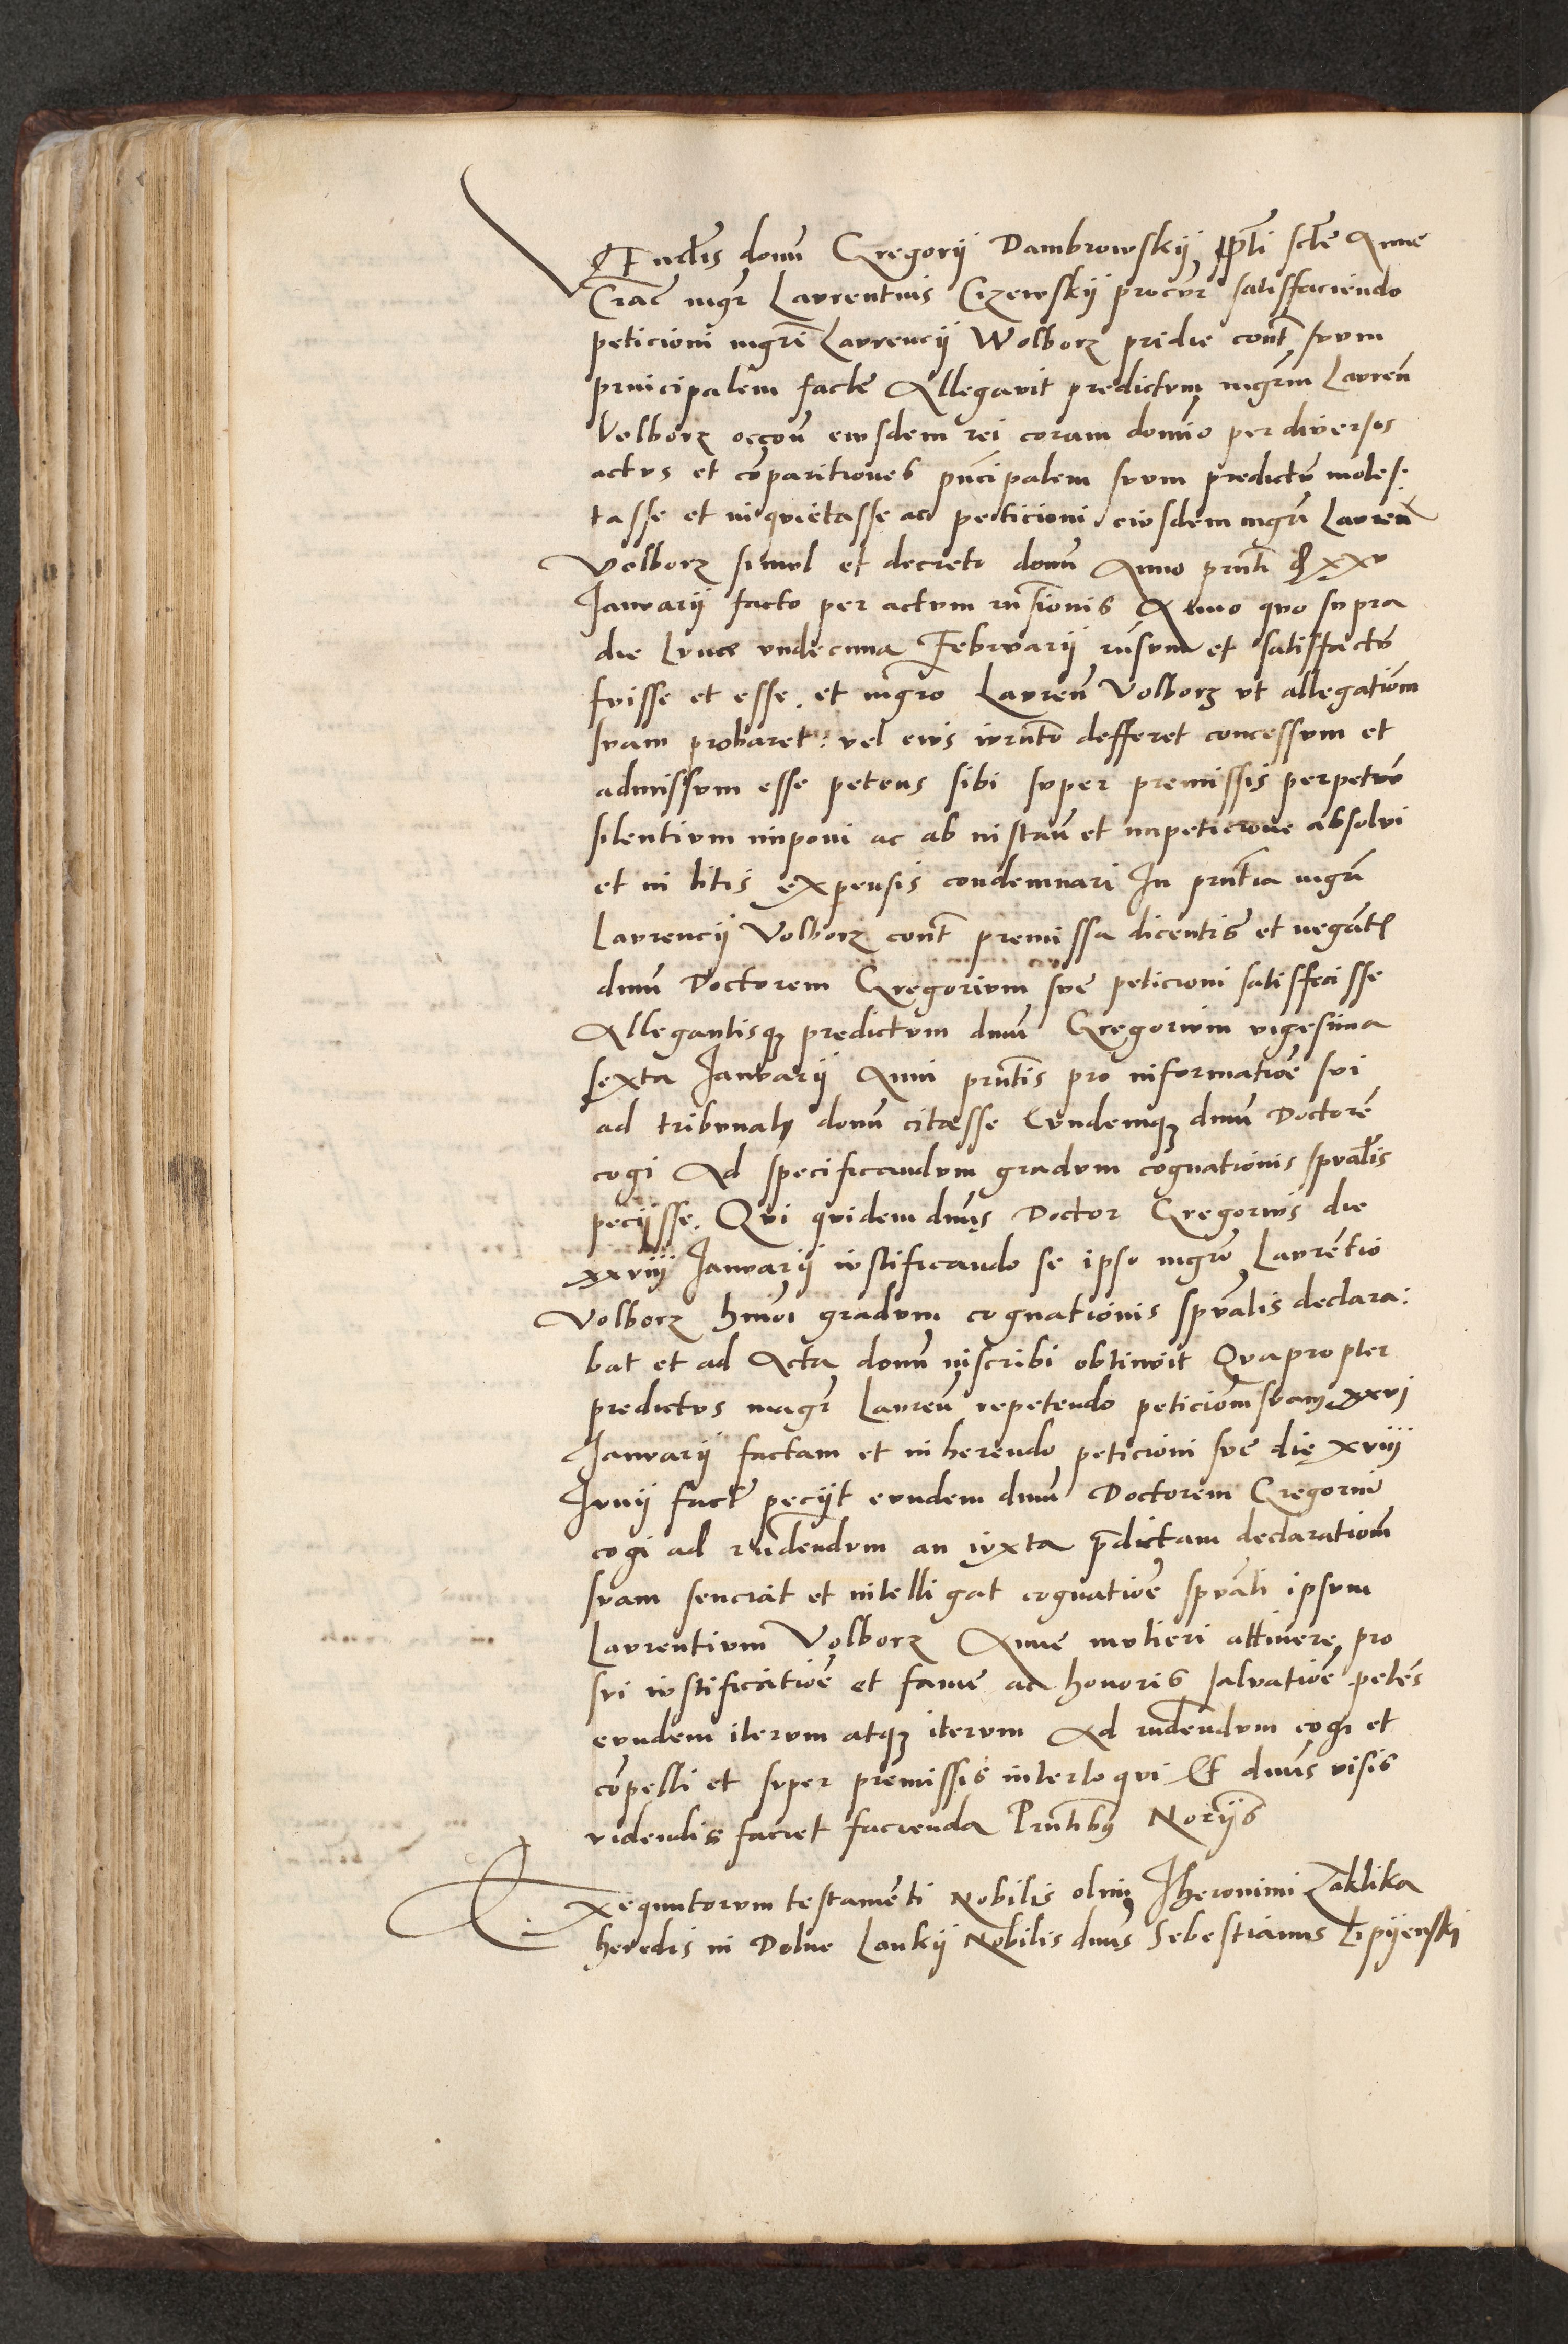 Eiusdem domini Gregorii Dambrowskij ppti scte Anne
Crac mgr Laurentius Cizewskij procur satisfaciendo
peticioni mgri Laurencij Wolborz pridie cont suum
principalem facte Allegavit predictum mgrum Lauren
Volborz occoe eiusdem rei coram domino per diversos
actus et coparitiones principalem suum predictu moles:
tasse et inquietasse ac peticioni eiusdem mgri Lauren
Volborz simul et decreto domini Anno prnti xxv
Januarij facto per actum rnsionis Anno quo supra
die Lune undecima Februarij rnsum et satisfactu
fuisse et esse. et mgro Lauren Volborz ut allegationem
suam probaret: vel eius iurnto defferet concessum et
admissum esse petens sibi super premissis perpetuu
silentium imponi ac ab instan et impeticione absolvi
et in litis expensis condemnari In prntia mgri
Laurencij Volborz cont premissa dicentis et negant
dnum Doctorem Gregorium sue peticioni satisffecisse
Allegantisq predictum dnum Gregorium vigesima
sexta Januarij Anni prntis pro informatioe sui
ad tribunal domini citasse Eundemq dnum Doctore
cogi Ad specificandum gradum cognationis spualis
peciisse. Qui quidem dnus Doctor Gregorius die
xxviij Januarij iustificando se ipso mgro Laurentio
Volborz hmoi gradum cognationis spualis declara:
bat et ad Acta domini inscribi obtinuit Quapropter
predictus magr Lauren repetendo peticionem suam xxvj
Januarij factam et inherendo peticioni sue die xviij
Junij facte peciit eundem dnum Doctorem Gregoriu
cogi ad rndendum an iuxta predictam declarationem
suam senciat et intelligat cognatioe spuali ipsum
Laurentium Volborz Anne mulieri attinere pro
sui iustificatioe et fame ac honoris salvatioe petens
eundem iterum atq iterum Ad rndendum cogi et
compelli et super premissis interloqui Et dnus visis
videndis faciet facienda Prntibus Norijs
Exequutorum testamenti Nobilis olim Jheronimi Zaklika
heredis in Dolne Lankij Nobilis dnus Sebestianus Lipijenski